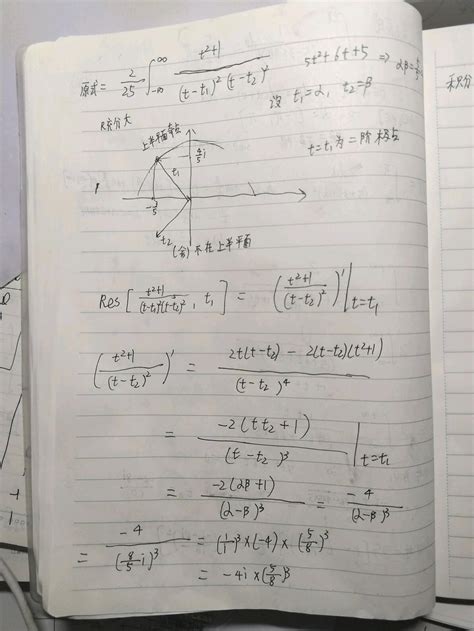 原式 = 2/25 ∫_{-∞}^{∞} (t²+1)/((t-t₁)²(t-t₂)²)
5t²+6t+5 ⇒ αβ=
设 t₁=α, t₂=β
R充分大
t=t₁为二阶极点
上半平面奇点
4/5 i
t₁
-3/5
t₂
(舍) 不在上半平面
Res[(t²+1)/((t-t₁)²(t-t₂)²), t₁] = ((t²+1)/(t-t₂)²)'|t=t₁
((t²+1)/(t-t₂)²)' = (2t(t-t₂) - 2(t-t₂)(t²+1))/(t-t₂)⁴
= -2(tt₂+1)/(t-t₂)³ |t=t₁
= -2(αβ+1)/(α-β)³ = -4/(α-β)³
= -4/(8/5 i)³ = (1/i)³×(-4)×(5/8)³
= -4i×(5/8)³
积分